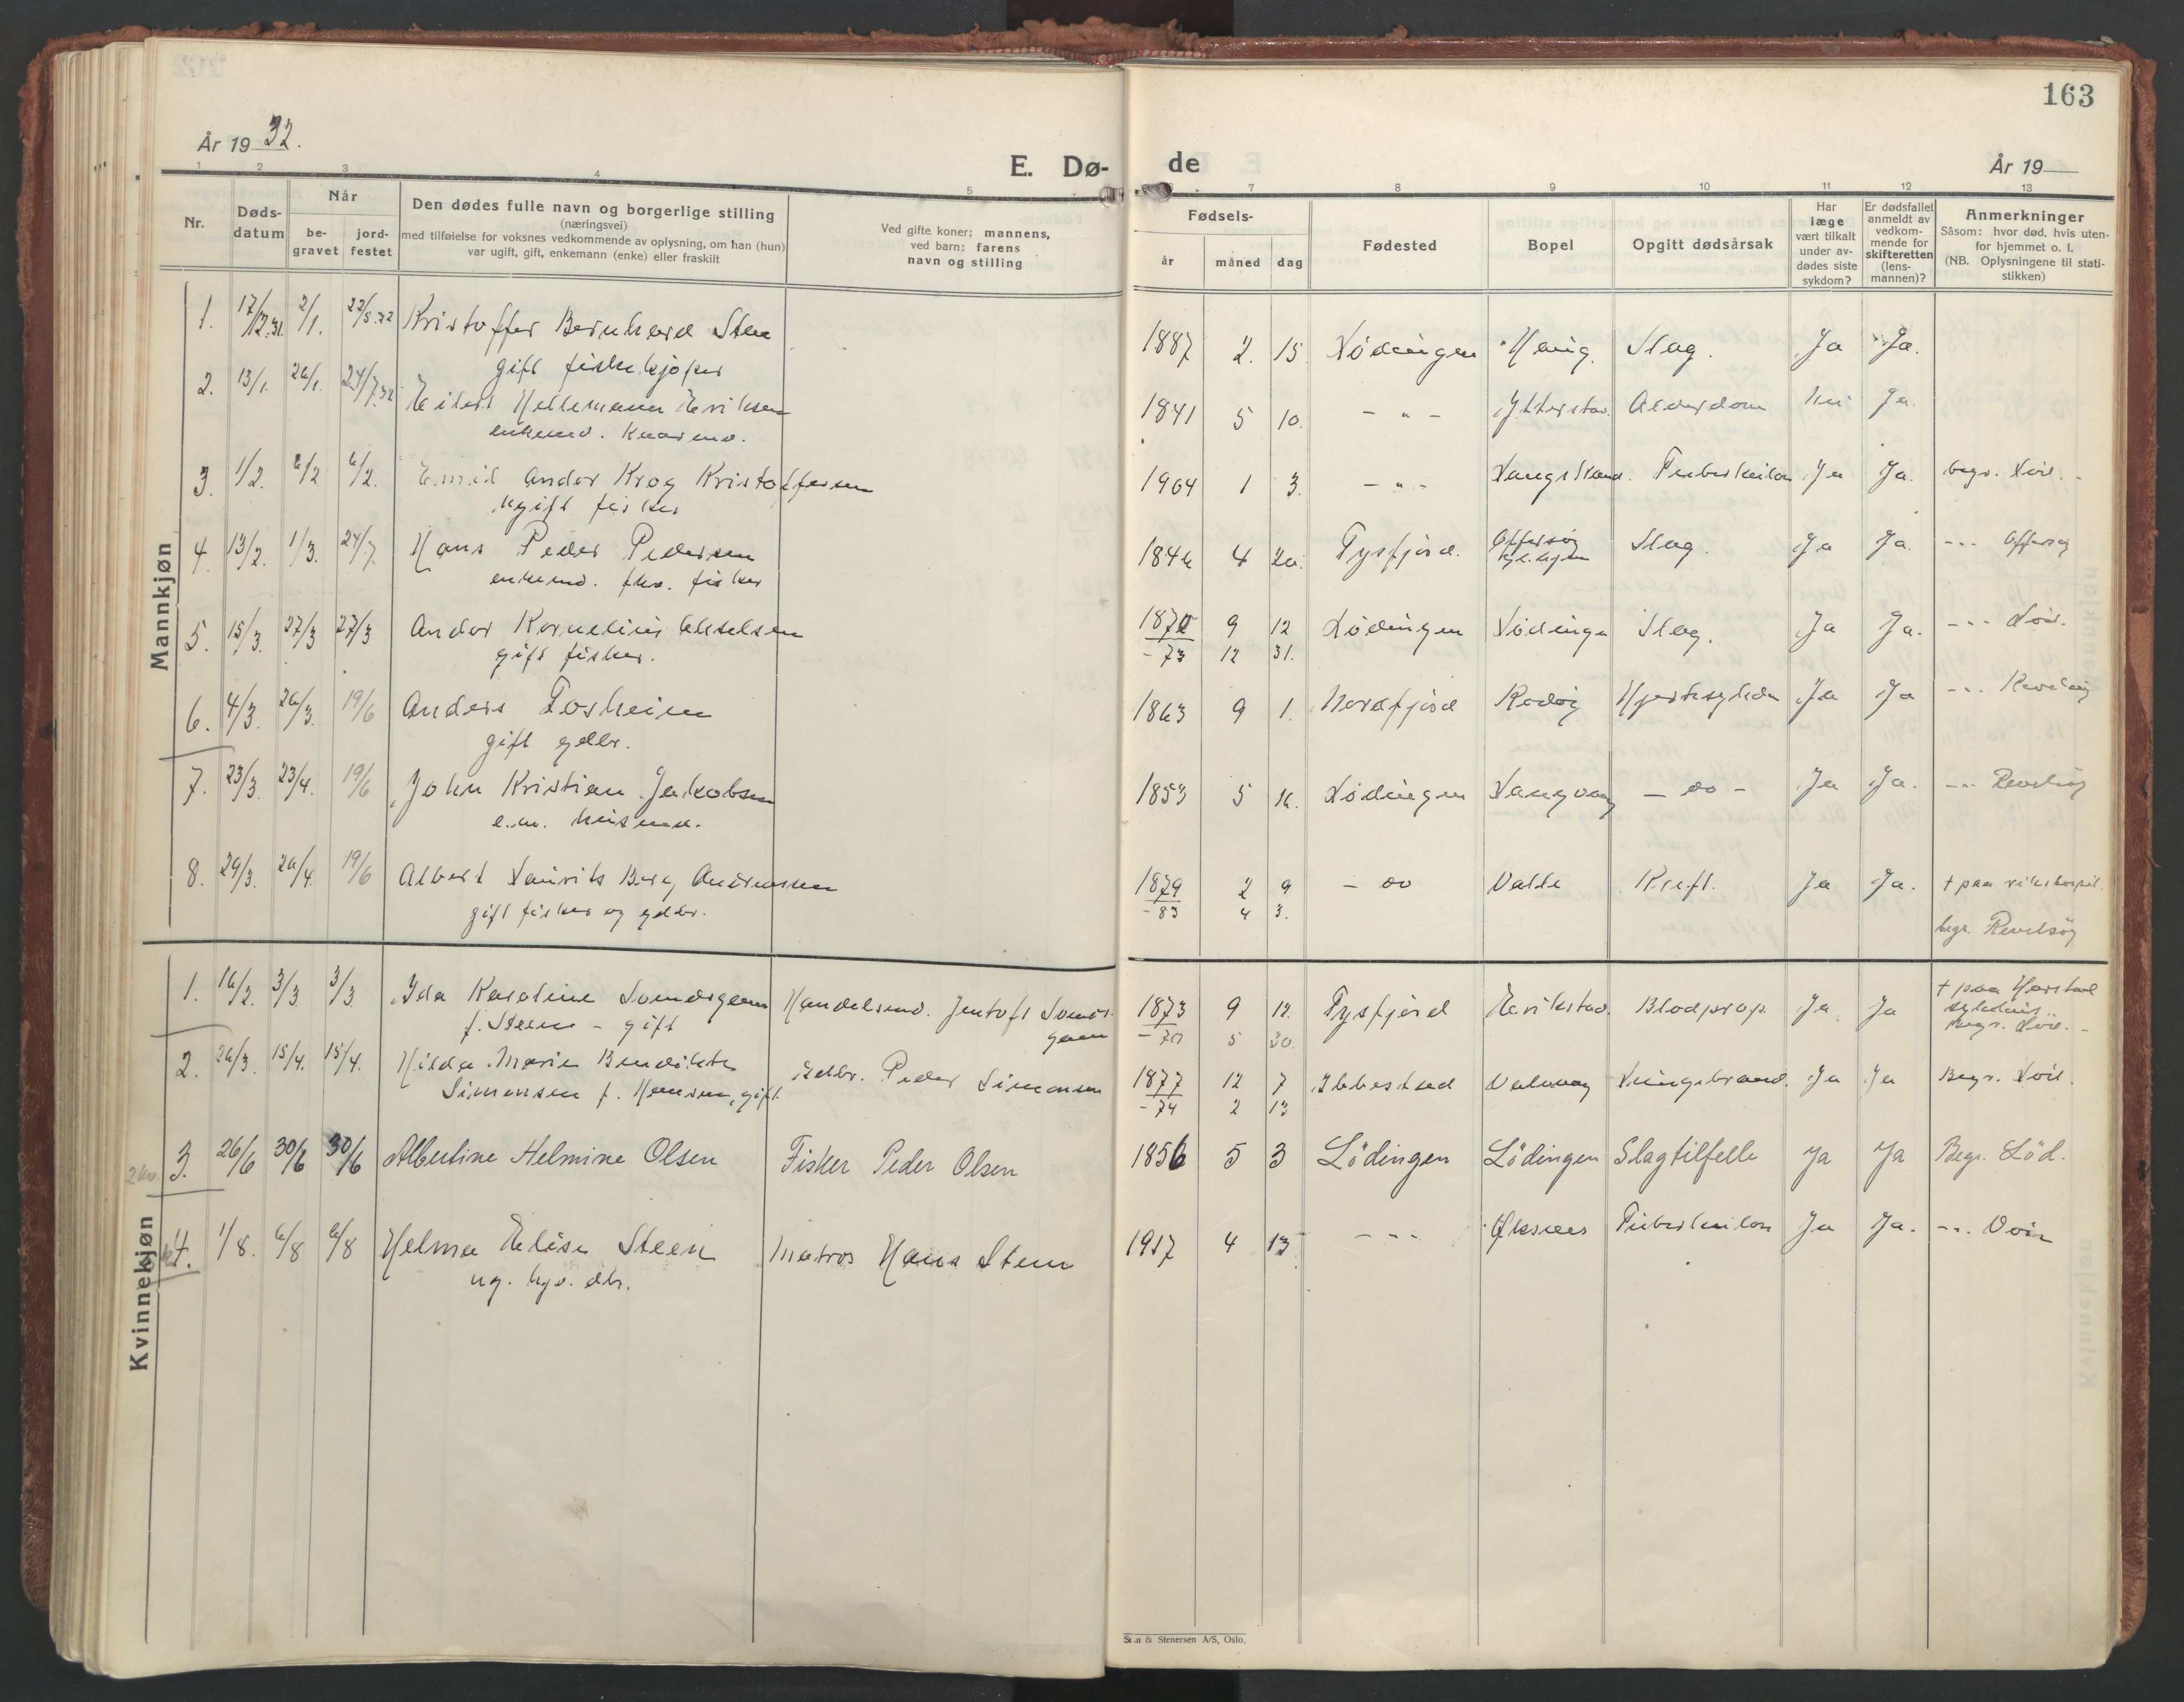 163
År 19 32.
E. Dø-
de
År 19
1 2 3 4 5 6 7 8 9 10 11 12 13
Nr.
Døds-
datum
Når
be-
gravet
jord-
festet
Den dødes fulle navn og borgerlige stilling
(næringsvei)
med tilføielse for voksnes vedkommende av oplysning, om han (hun)
var ugift, gift, enkemann (enke) eller fraskilt
Ved gifte koner; mannens,
ved barn; farens
navn og stilling
Fødsels-
år måned dag
Fødested
Bopel
Opgitt dødsårsak
Har
læge
vært tilkalt
under av-
dødes siste
sykdom?
Er dødsfallet
anmeldt av
vedkom-
mende for
skifteretten
(lens-
mannen)?
Anmerkninger
Såsom: hvor død, hvis uten-
for hjemmet o. l.
(NB. Oplysningene til stati-
stikken)
Mannkjøn
1. 17/12.31. 2/1. Kristoffer Bernhard Steen 1887 2. 15 Lödingen Slag. Ja Ja.
gift fiskekjøper
2. 13/1. 26/1. 24/7.32 Eilert Hellemann Eriksen 1841 5 10. - " - Ytterstad. Alderdom Nei Ja.
enkemd. Kaarmd.
3. 1/2. 6/2 6/2. Emil Andor Krog Kristoffersen 1904 1 3. - " - Vangstrand. Tuberkulose Ja Ja. begr. Löd.
ugift fisker
4. 13/2. 1/3. 24/7. Hans Peder Pedersen 4 20. Tysfjord. Offersøy Slag. Ja Ja. - " - Offersøy
enkemd. fhv. fisker
5. 15/3. 27/3 27/3 Andor Kornelius Akselsen 1870 9 12 Lödingen Lödingen Slag. Ja Ja. - " - Löd.
gift fisker. - 73 12 31.
6. 4/3. 26/3. 19/6 Anders Torheim 1863 9 1. Nordfjord Rødøy Hjertesykdom Ja Ja - " -
gift gdbr.
7. 23/3. 23/4. 19/6 John Kristian Jakobsen 1853 5 16. Lödingen Vangvaag - " - Ja Ja. - " -
e.m. husmd.
8. 29/3. 26/4. 19/6 Albert Laurits Berg Andreassen 1879 2 9 - " - Valle Kreft. Ja Ja. + paa rikshospit.
gift fisker og gdbr. - 83 4 3. begr. Revelsøy
Kvinnekjøn
1. 16/2. 3/3 3/3 Ida Karoline Svendsgaam Handelsmd. Jentoft Svends- 1873 9 12. Tysfjord Erikstad. Blodprop. Ja Ja + paa Harstad
f. Steen - gift gaam - 70 5 30. sykehus.. begr. Löd.
2. 26/3. 15/4. 15/4. Hilda Marie Bendikte Gdbr. Peder Simonsen 1877 12 7 Ibbestad Valvaag Lungebrand. Ja Ja Begr. Löd.
Simonsen f. Hansen, gift. - 74 2 13
3. 26/6 30/6 30/6 Albertine Helmine Olsen Fisker Peder Olsen 1856 5 3 Lödingen Lödingen Slagtilfelle Ja Ja Begr. Löd.
4. 1/8. 6/8 6/8 Helma Elise Steen Matros Hans Steen 1917 4 13 - " - Øksnes Tuberkulose Ja Ja. - " -
ug. hjv. dtr.
Stenersen A/S, Oslo.